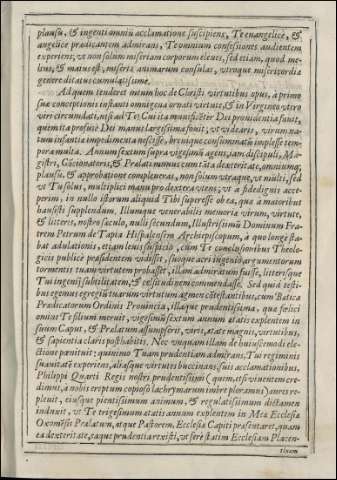 plausu, & ingenti omniū acclamatione suscipiens, Te euangelicè, &
angelicè prædicantem admirans, Te omnium confessiones audientem
experiens, vt non solum miseriam corporum eleues, sed etiam, quod me-
lius, & maius est, miseriæ animarum consulas, vtroque misericordiæ
genere ditatus cumulatissimè.
Ad quem tenderet meum hoc de Christi virtutibus opus, à primo
suæ conceptionis instanti omnigena ornati virtute, & in Virgineo vtero
veri circumdati, nisi ad Te; Cui ita munificè Dei prouidentia fauit,
quem ita profusè Dei manus largissima fouit, vt videaris, virum na-
tum infantiæ impedimenta nescisse, breuique consummatū implesse tem-
pora multa. Annum sextum supra vigesimū agens, iam discipuli, Ma-
gistri, Cōcionatoris, & Prælati munus cum tāta dexteritate, omniumq;
plausu, & approbatione compleueras, non solum vtraque, vt multi, sed
vt Tu solus, multiplici manu pro dextera vtens; vt à fidedignis acce-
perim, in nullo istorum aliquid Tibi superesse ob ea, quæ à maioribus
hausisti supplendum. Illumque venerabilis memoria virum, virtute,
& litteris, nostro sæculo, nulli secundum, Illustrissimū Dominum Fra-
trem Petrum de Tapia Hispalensem Archiepiscopum, à quo longè sta-
bat adulationis, etiam leuis suspicio, cum Te conclusionibus Theolo-
gicis publicè præsidentem vidisset, suoque acri ingenio argumentorum
tormentis tuam virtutem probasset, illam admiratum fuisse, litterisque
Tui ingenij subtilitatem, & celsitudinem commendasse. Sed quid testi-
bus egemus egregiū tuarum virtutum agmen cōtestantibus, cum Bætica
Prædicatorum Ordinis Prouincia, illaque prudentissima, quæ fœlici
omine Te filium meruit, vigesimū sextum annum ætatis explentem in
suum Caput, & Prælatum assumpserit, viros, ætate magnis, virtutibus,
& sapientia claris posthabitis. Nec vnquam illam de huiuscemodi ele-
ctione pœnituit: quinimo Tuam prudentiam admirans, Tui regiminis
suauitate experiens, aliasque virtutes buccinans, suis acclamationibus,
Philippi Quarti Regis nostri prudentissimi (quem, etsi viuentem cre-
dimus, à nobis ereptum copioso lachrymarum imbre ploramus) aures re-
pleuit, eiusque pientissimum animum, & regulatissimum dictamen
induxit, vt Te trigesimum ætatis annum explentem in Mea Ecclesia
Oxomēsis Prælatum, atque Pastorem, Ecclesiæ Capiti præsentaret, quam
ea dexteritate, eaque prudentia rexisti, vt ferè statim Ecclesiam Placen-
tinam